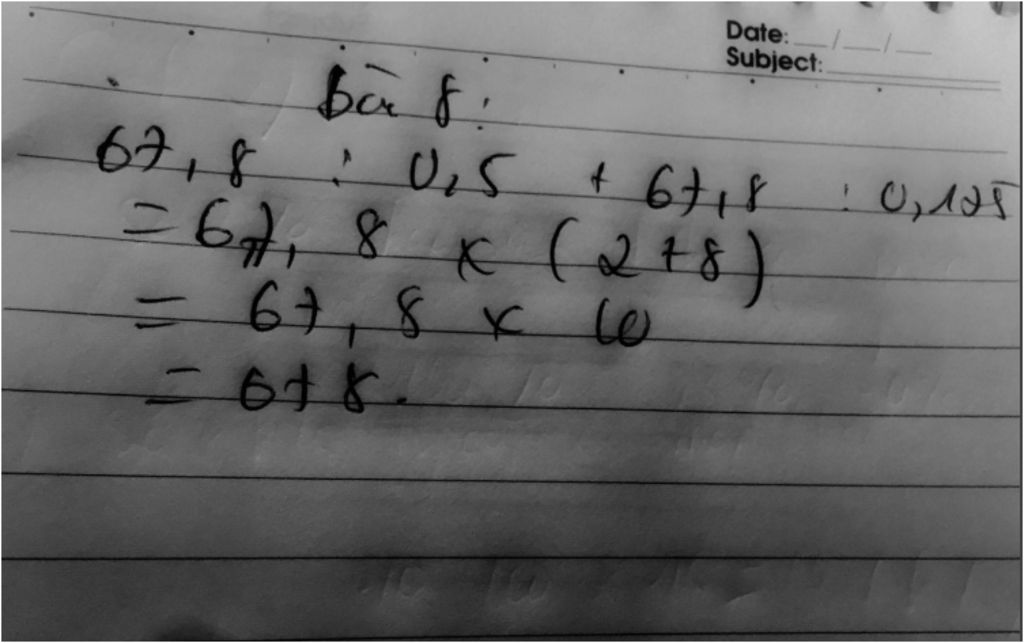 Date: __/__/__
Subject:
bài 8:
67,8 : 0,5 + 67,8 : 0,125
= 67,8 x (2+8)
= 67,8 x 10
= 678.